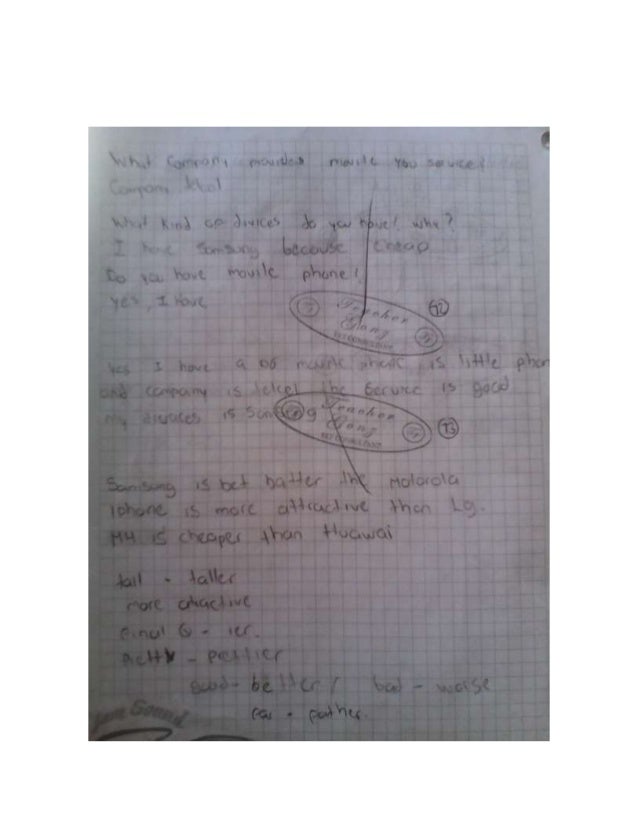 What Company movile you service?
Company telcel
What kind of divices do you have? why?
I have Samsung because cheap
Do you have movile phone?
Yes, I have
Teacher
Gang
T2
Yes I have a movile is little phon
and company is telcel the Service is good
my divaces is Samsung
Teacher
Gang
T3
Samsung is bet batter the Motorola
Iphone is more attractive than Lg.
M4 is cheaper than Huawai
tall - taller
more atractive
final - ier.
- pettier
good - better / bad - worse
far - father.